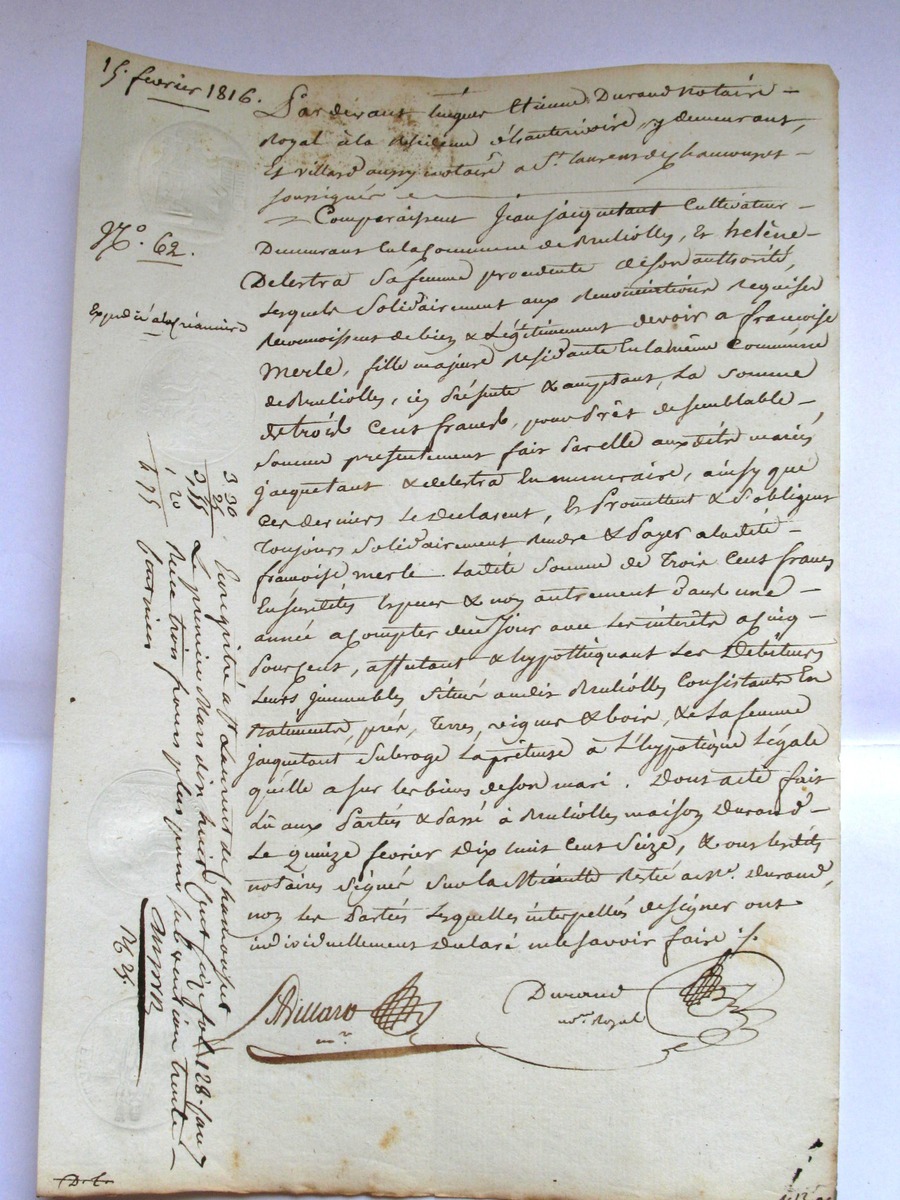 15. fevrier 1816.
Pardevant luigue Etienne Durand Notaire
Royal à la Residence d'hauterivoire, y demeurant,
Et villard aussy notaire a St. laurens de Chamousset
soussignés
Comparaissent Jean jacquetant Cultivateur
Demeurant En la Commune de Bruliolles, Et helène
Delestra sa femme procedente de son authorité,
Lesquels Solidairement aux Renonciations Requises
Reconnoissent de bien & Légitimement devoir a françoise
Merle, fille majeure Residante En la même Commune
de Bruliolles, icy présente & acceptant, La somme
de trois Cent francs, pour prêt de semblable
Somme presentement fait par elle aux dits mariés
jacquetant & delestra En numeraire, ainsy que
Ces derniers Le declarent, Et Promettent & S'obligent
Toujours solidairement Rendre & Payer a la dite
françoise merle La dite Somme de Trois Cent francs
En susdites Especes & non autrement dans une
année a Compter de ce jour avec Les intérêts a cinq
Pour cent, affectant & hypothéquant Les Débiteurs
Leurs jmmeubles Situés audit Brulliolles Consistants En
Batiments, prés, Terres, vignes & bois, & La femme
jacquetant Subroge La prêteuse à L'hypothèque Légale
qu'elle a sur les biens de son mari. Dont acte fait
Lû aux Parties & Passé à Brulliolles maison Durand
Le quinze fevrier Dix huit Cent Seize, & ont lesdits
notaires Signé Sur la Minute Restée a Me. Durand,
non les Parties Lesquelles interpellés de signer ont
individuellement declaré ne le savoir faire ./.
Villard
nre.
Durand
nore. Royal
No. 62.
Expedié a la Créancière
Enregistré a St Laurent de Chamousset
Le premier Mars dix huit Cent seize fol. 128.
Recu trois francs plus pour subvention trente
centimes
3 30
25
3,55
1 20
4 75